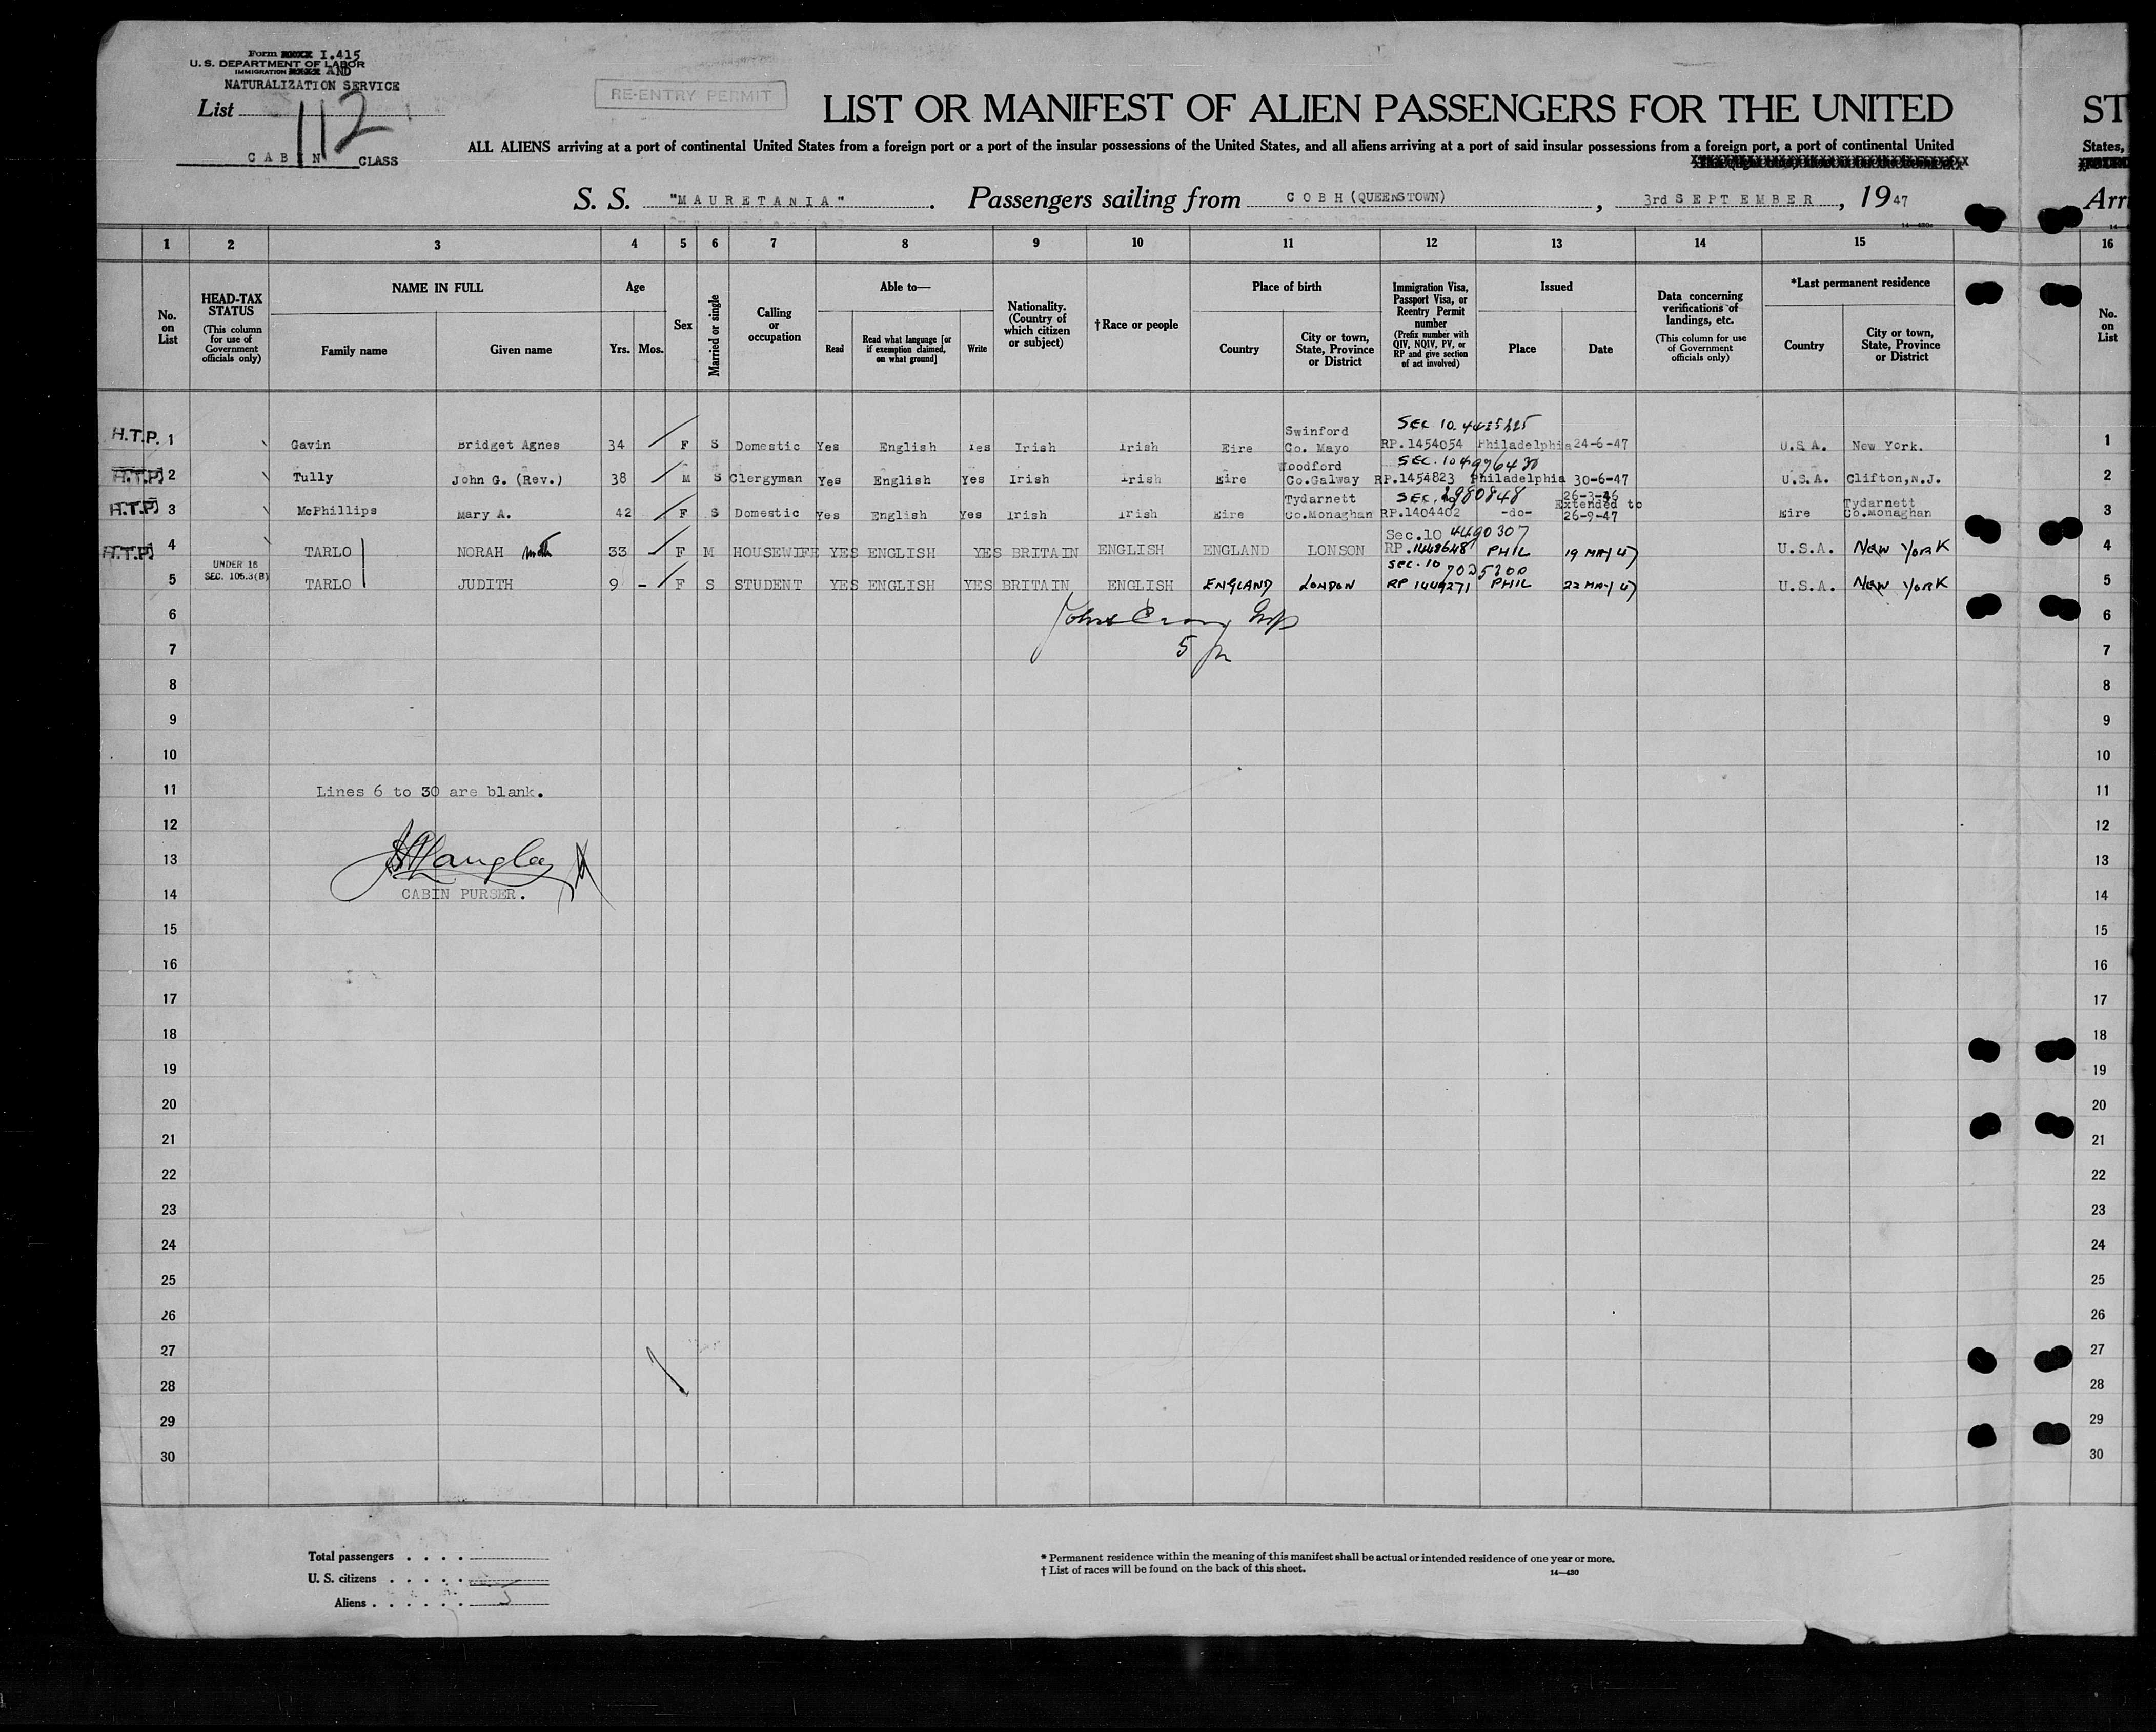 Form I.415
U. S. DEPARTMENT OF LABOR
IMMIGRATION AND
NATURALIZATION SERVICE
List 112
CABIN CLASS
RE-ENTRY PERMIT
LIST OR MANIFEST OF ALIEN PASSENGERS FOR THE UNITED ST
ALL ALIENS arriving at a port of continental United States from a foreign port or a port of the insular possessions of the United States, and all aliens arriving at a port of said insular possessions from a foreign port, a port of continental United States,
S. S. "MAURETANIA". Passengers sailing from COBH (QUEENSTOWN), 3rd SEPTEMBER, 1947 Arr
1 2 3 4 5 6 7 8 9 10 11 12 13 14 15 16
No. on List
HEAD-TAX STATUS
(This column for use of Government officials only)
NAME IN FULL
Family name Given name
Age
Yrs. Mos.
Sex
Married or single
Calling or occupation
Able to—
Read Read what language [or if exemption claimed, on what ground] Write
Nationality. (Country of which citizen or subject)
†Race or people
Place of birth
Country City or town, State, Province or District
Immigration Visa, Passport Visa, or Reentry Permit number
(Prefix number with QIV, NQIV, PV, or RP and give section of act involved)
Issued
Place Date
Data concerning verifications of landings, etc.
(This column for use of Government officials only)
*Last permanent residence
Country City or town, State, Province or District
No. on List
Swinford SEC 10.
H.T.P. 1 Gavin Bridget Agnes 34 F S Domestic Yes English Yes Irish Irish Eire Co. Mayo RP.1454054 Philadelphia 24-6-47 U.S.A. New York. 1
Woodford SEC. 10
H.T.P. 2 Tully John G. (Rev.) 38 M S Clergyman Yes English Yes Irish Irish Eire Co.Galway RP.1454823 Philadelphia 30-6-47 U.S.A. Clifton, N.J. 2
Tydarnett SEC. 10 2980848 26-3-46 Extended to Tydarnett
H.T.P. 3 McPhillips Mary A. 42 F S Domestic Yes English Yes Irish Irish Eire Co.Monaghan RP.1404402 -do- 26-9-47 Eire Co.Monaghan 3
Sec.10 4490307
H.T.P. 4 TARLO NORAH 33 F M HOUSEWIFE YES ENGLISH YES BRITAIN ENGLISH ENGLAND LONSON RP.1448648 PHIL 19 MAY 47 U.S.A. NEW YORK 4
UNDER 16
SEC. 105.3(B)
Sec. 10 7025300
5 TARLO JUDITH 9 - F S STUDENT YES ENGLISH YES BRITAIN ENGLISH ENGLAND LONDON RP 1449271 PHIL 22 MAY 47 U.S.A. NEW YORK 5
6 6
7 7
8 8
9 9
10 10
11 Lines 6 to 30 are blank. 11
12 12
13 13
14 CABIN PURSER. 14
15 15
16 16
17 17
18 18
19 19
20 20
21 21
22 22
23 23
24 24
25 25
26 26
27 27
28 28
29 29
30 30
Total passengers . . . .
U. S. citizens . . . . .
Aliens . . . . . . 5
* Permanent residence within the meaning of this manifest shall be actual or intended residence of one year or more.
† List of races will be found on the back of this sheet.
14—430